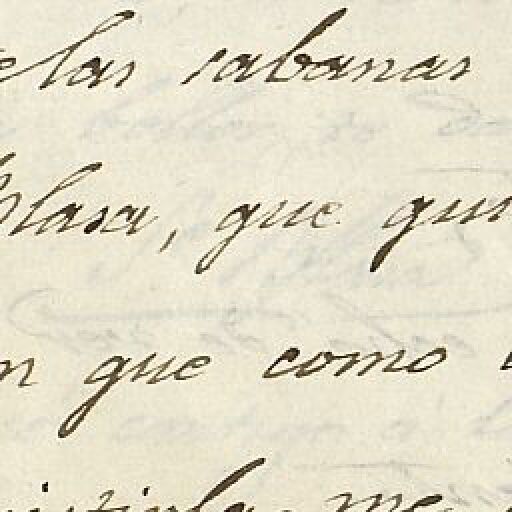 elas sabanas
Blasa, que qui
n que como
me